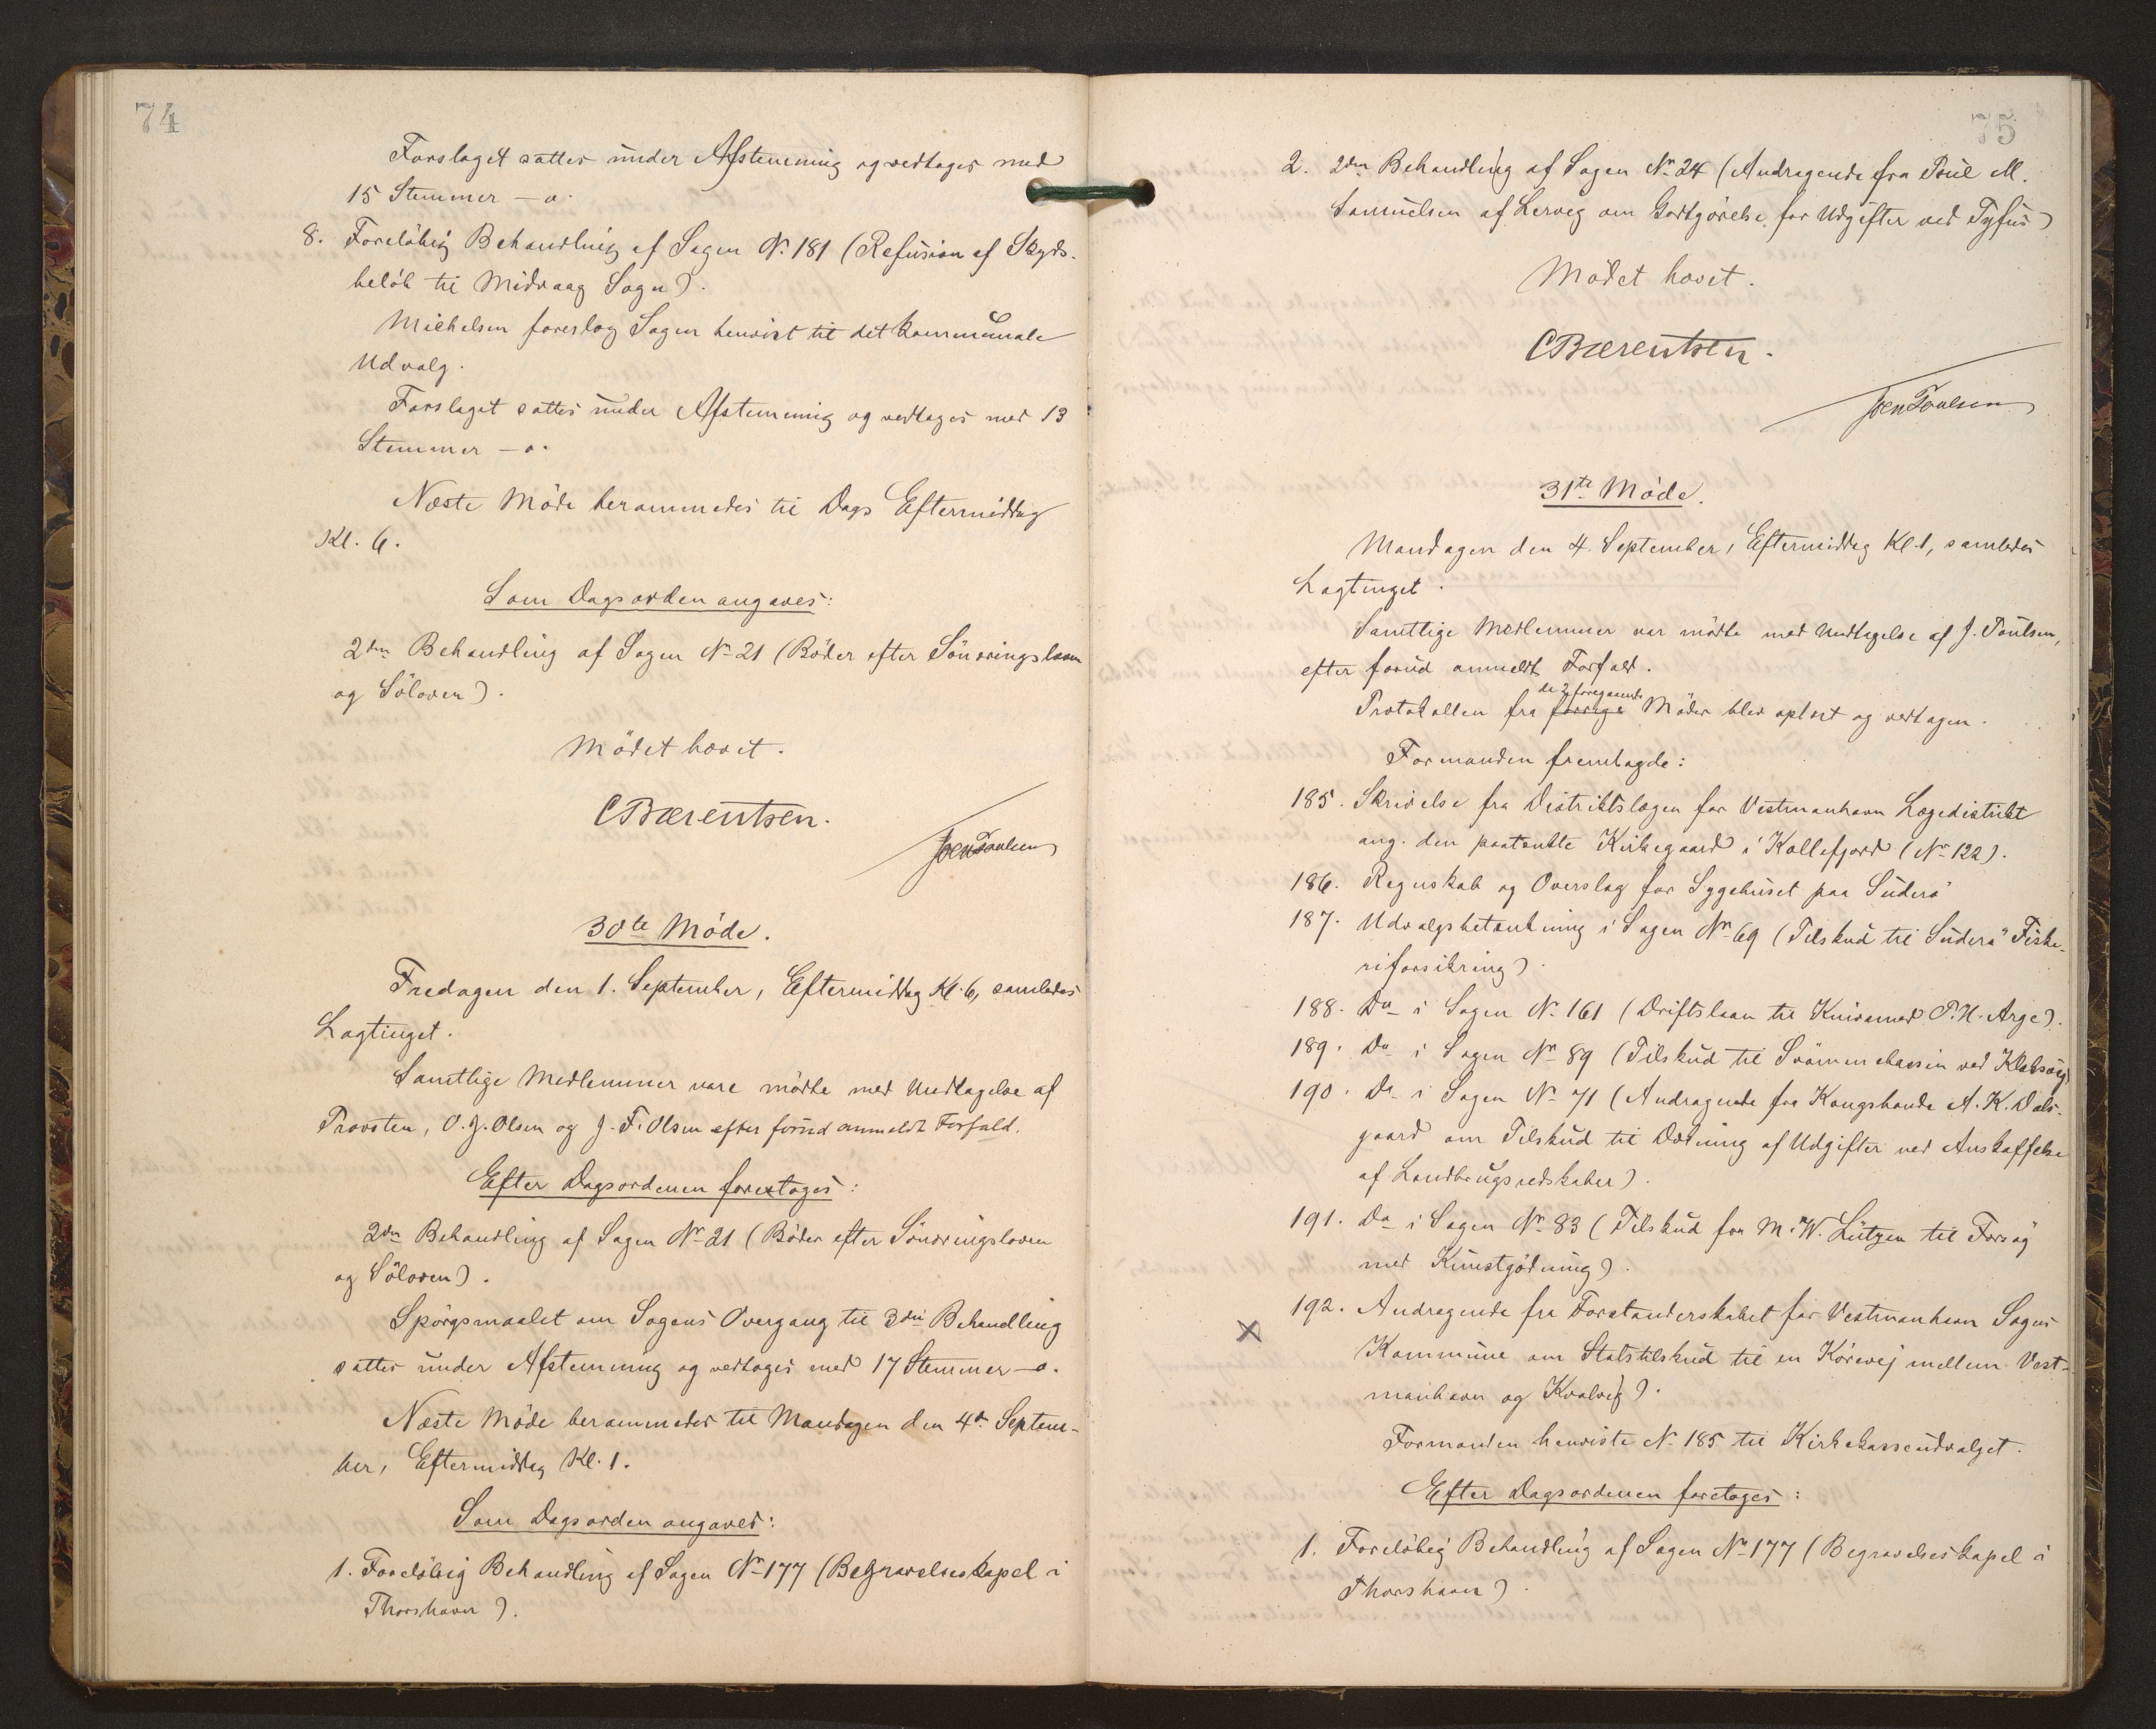 74
Forslaget sattes under Afstemning og vedtoges med
15 Stemmer – o.
8. Foreløbig Behandling af Sagen Nr. 181 (Refusion af Skyds-
beløb til Midvaag Sogn).
Michelsen foreslog Sagen henvist til det kommunale
Udvalg.
Forslaget sattes under Afstemning og vedtoges med 13
Stemmer – o.
Næste Møde berammedes til Dags Eftermiddag
Kl. 6.
Som Dagsorden angaves:
2den Behandling af Sagen Nr 21 (Bøder efter Sønæringsloven
og Søloven).
Mødet hævet.
CBærentsen.
Joen Poulsen
30te Møde.
Fredagen den 1. September, Eftermiddag Kl. 6, samledes
Lagtinget.
Samtlige Medlemmer vare mødte med Undtagelse af
Provsten, O. J. Olsen og J. F. Olsen efter forud anmeldt Forfald.
Efter Dagsordenen foretoges:
2den Behandling af Sagen Nr 21 (Bøder efter Sønæringsloven
og Søloven).
Spørgsmaalet om Sagens Overgang til 3die Behandling
sattes under Afstemning og vedtoges med 17 Stemmer – o.
Næste Møde berammedes til Mandagen den 4de Septem-
ber, Eftermiddag Kl. 1.
Som Dagsorden angaves:
1. Foreløbig Behandling af Sagen Nr 177 (Begravelseskapel i
Thorshavn).
75
2. 2den Behandling af Sagen Nr 24 (Andragende fra Poul M.
Samuelsen af Lervig om Godtgørelse for Udgifter ved Tyfus)
Mødet hævet.
CBærentsen.
Joen Poulsen
31te Møde.
Mandagen den 4. September, Eftermiddag Kl. 1, samledes
Lagtinget.
Samtlige Medlemmer var mødte med Undtagelse af J. Poulsen,
efter forud anmeldt Forfald.
de 2 foregaaende
Protokollen fra forrige Møder blev oplæst og vedtagen.
Formanden fremlagde:
185. Skrivelse fra Distriktslægen for Vestmanhavn Lægedistrikt
ang. den paatænkte Kirkegaard i Kollefjord (Nr 122).
186. Regnskab og Overslag for Sygehuset paa Suderø
187. Udvalgsbetænkning i Sagen Nr 69 (Tilskud til Suderø Fiske-
riforsikring).
188. Do i Sagen Nr 161 (Driftslaan til Knivsmed P. H. Arge).
189. Do i Sagen Nr 89 (Tilskud til Svømmebassin ved Klaksvig)
190. Do i Sagen Nr 71 (Andragende fra Kongsbonde A. K. Dals-
gaard om Tilskud til Dækning af Udgifter ved Anskaffelse
af Landbrugsredskaber).
191. Do i Sagen Nr 83 (Tilskud fra M. W. Lützen til Forsøg
med Kunstgødning).
192. Andragende fra Forstanderskabet for Vestmanhavn Sogns
X
Kommune om Statstilskud til en Kørevej mellem Vest-
manhavn og Kvalvig).
Formanden henviste Nr 185 til Kirkekasseudvalget.
Efter Dagsordenen foretoges:
1. Foreløbig Behandling af Sagen Nr 177 (Begravelseskapel i
Thorshavn).